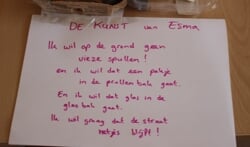 DE KUNST van Esma
Ik wil op de grond geen
vieze spullen!
en ik wil dat een pakje
in de prullenbak gaat.
En ik wil dat glas in de
glasbak gaat.
Ik wil graag dat de straat
netjes blijft!